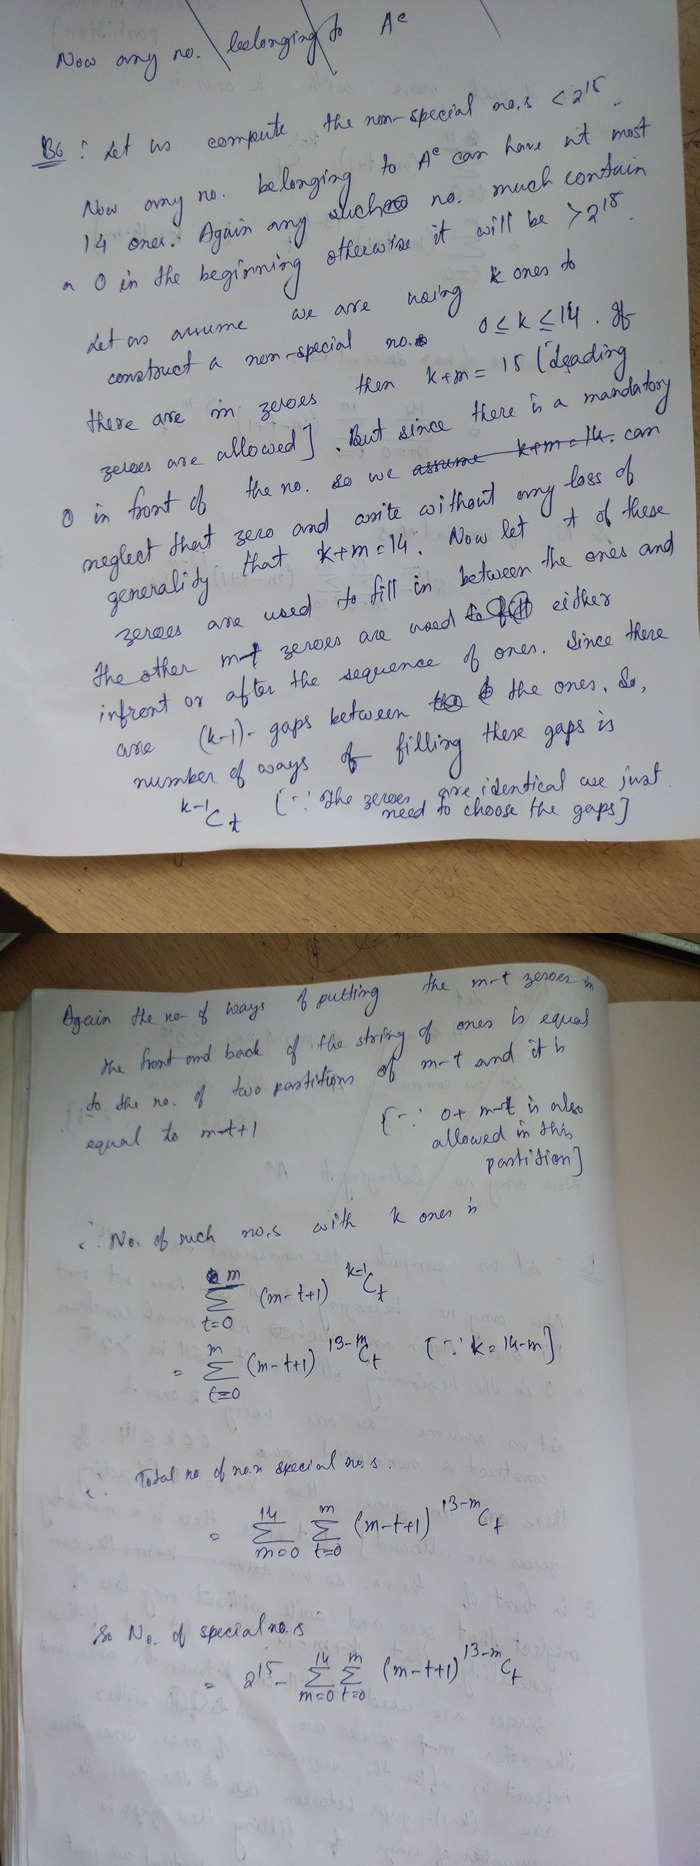 Now any no. belonging to Aᶜ
B6 : Let us compute the non-special no.s < 2¹⁵.
Now any no. belonging to Aᶜ can have at most
14 ones. Again any such no. much contain
a 0 in the beginning otherwise it will be > 2¹⁵.
Let us assume we are using k ones to
construct a non-special no. 0 ≤ k ≤ 14. If
there are m zeroes then k+m = 15 [leading
zeroes are allowed]. But since there is a mandatory
0 in front of the no. so we assume k+m=14. can
neglect that zero and write without any loss of
generality that k+m=14. Now let t of these
zeroes are used to fill in between the ones and
the other m-t zeroes are used either
infront or after the sequence of ones. Since there
are (k-1)- gaps between the ones. So,
number of ways of filling these gaps is
ᵏ⁻¹Cₜ [∵ The zeroes are identical we just
need to choose the gaps]
Again the no. of ways of putting the m-t zeroes in
the front and back of the string of ones is equal
to the no. of two partitions of m-t and it is
equal to m-t+1 [∵ 0+ m-t is also
allowed in this
partition]
∴ No. of such no.s with k ones is
m
∑ (m-t+1) ᵏ⁻¹Cₜ
t=0
m
= ∑ (m-t+1) ¹³⁻ᵐCₜ [∵ k = 14-m]
t=0
∴ Total no of non special no.s.
14 m
= ∑ ∑ (m-t+1) ¹³⁻ᵐCₜ
m=0 t=0
So No. of special no.s
14 m
= 2¹⁵ - ∑ ∑ (m-t+1) ¹³⁻ᵐCₜ
m=0 t=0